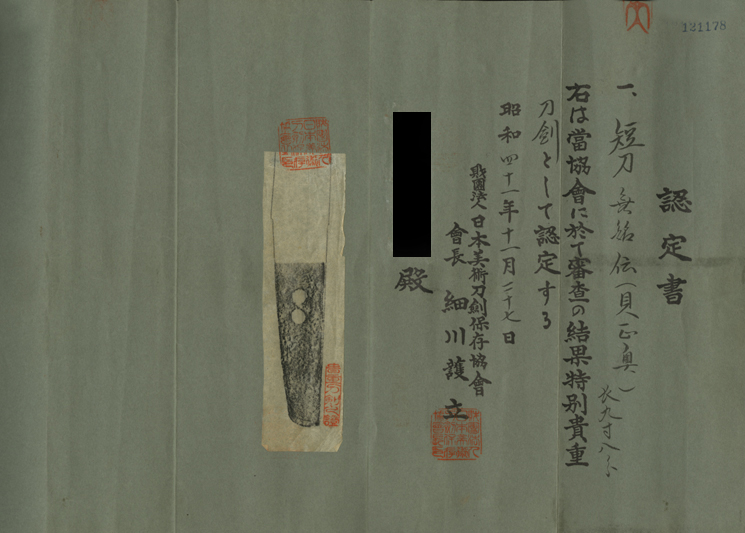 121178
認定書
一、短刀 無銘 伝(貝正奥)
長九寸八分
右は當協會に於て審査の結果特別貴重
刀劍として認定する
昭和四十一年十一月二十七日
財團法人日本美術刀劍保存協會
會長 細川護立
殿